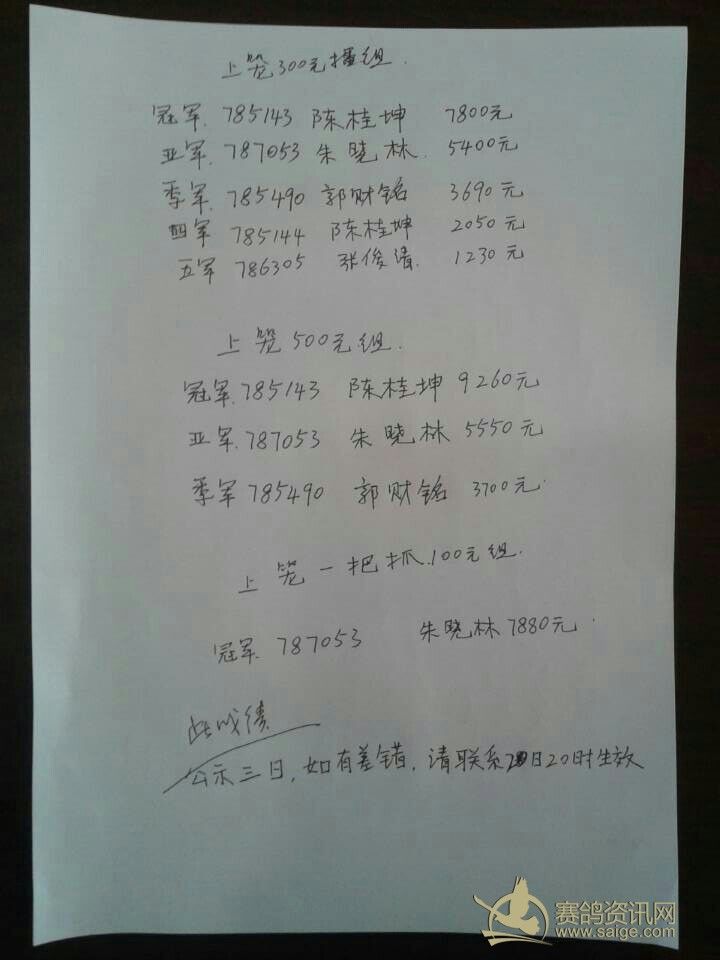 上笼300元擂组.
冠军.785143 陈桂坤 7800元
亚军.787053 朱晓林. 5400元
季军.785490 郭财铭 3690元
四军 785144 陈桂坤 2050元
五军 786305 张俊清. 1230元
上笼500元组.
冠军.785143 陈桂坤 9260元
亚军.787053 朱晓林 5550元
季军785490 郭财铭 3700元.
上笼一把抓.100元组.
冠军. 787053 朱晓林7880元.
此成绩
公示三日,如有差错,请联系 日20时生效
赛鸽资讯网
www.saige.com